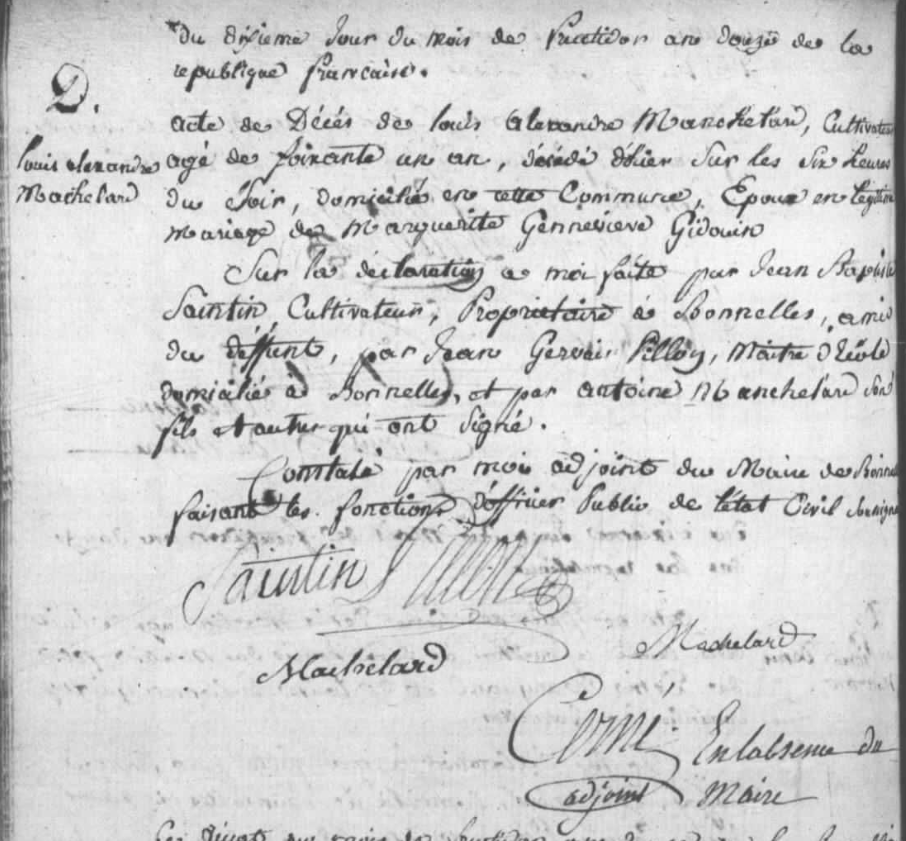 Du dixieme Jour du mois de Fructidor an douze de la
republique française.
D.
Louis alexandre
Machelard
acte de Décés de louis alexandre Manchelard, Cultivateur
agé de soixante un an, décédé d'hier sur les six heures
du soir, domicilié en cette Commune, Epoux en légitime
mariage de Marguerite Gennevieve Gidouin
Sur la declaration a moi faite par Jean Baptiste
Saintin Cultivateur, Propriétaire à Bonnelles, ami
du déffunt, par Jean Gervais Pilloy, Maitre d'Ecole
domicilié à Bonnelles, et par antoine Manchelard son
fils et autres qui ont signé.
Constaté par moi adjoint du Maire de Bonnel
faisant les fonctions d'officier Public de l'état Civil soussigné
Saintin
Machelard
Machelard
En labsence du
adjoint Maire